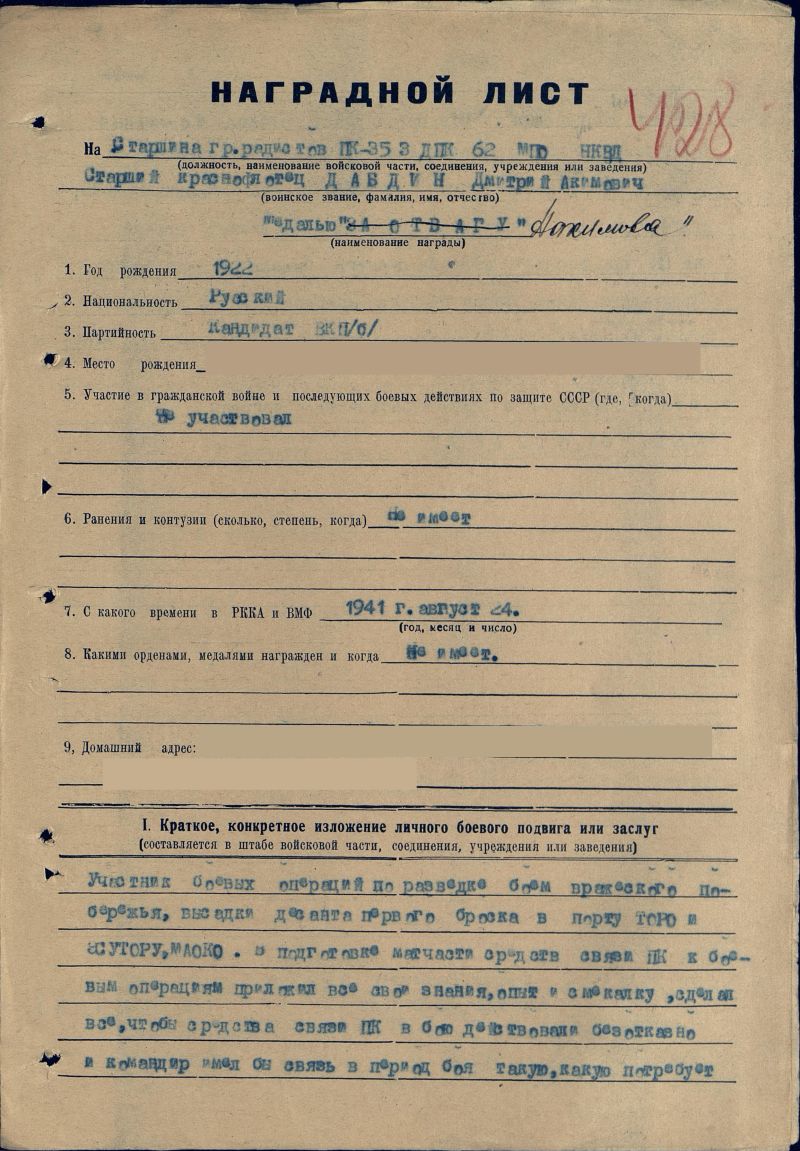 НАГРАДНОЙ ЛИСТ
428
На Старшина гр.радистов ПК-35 3 ДПК 62 МПО НКВД
(должность, наименование войсковой части, соединения, учреждения или заведения)
Старший краснофлотец ДАБДИН Дмитрий Акимович
(воинское звание, фамилия, имя, отчество)
"Медалью "ЗА ОТВАГУ" Нахимова"
(наименование награды)
1. Год рождения 1922
2. Национальность Русский
3. Партийность Кандидат ВКП/б/
4. Место рождения
5. Участие в гражданской войне и последующих боевых действиях по защите СССР (где, когда)
Не участвовал
6. Ранения и контузии (сколько, степень, когда) Не имеет
7. С какого времени в РККА и ВМФ 1941 г. август 24.
(год, месяц и число)
8. Какими орденами, медалями награжден и когда Не имеет.
9, Домашний адрес:
I. Краткое, конкретное изложение личного боевого подвига или заслуг
(составляется в штабе войсковой части, соединения, учреждения или заведения)
Участник боевых операций по разведке боем вражеского по-
бережья, высадки десанта первого броска в порту ТОРО и
ЭСУТОРУ,МАОКО. В подготовке матчасти средств связи ПК к бое-
вым операциям приложил все свои знания,опыт и смекалку ,сделал
все,чтобы средства связи ПК в бою действовали безотказно
и командир имел бы связь в период боя такую,какую потребует